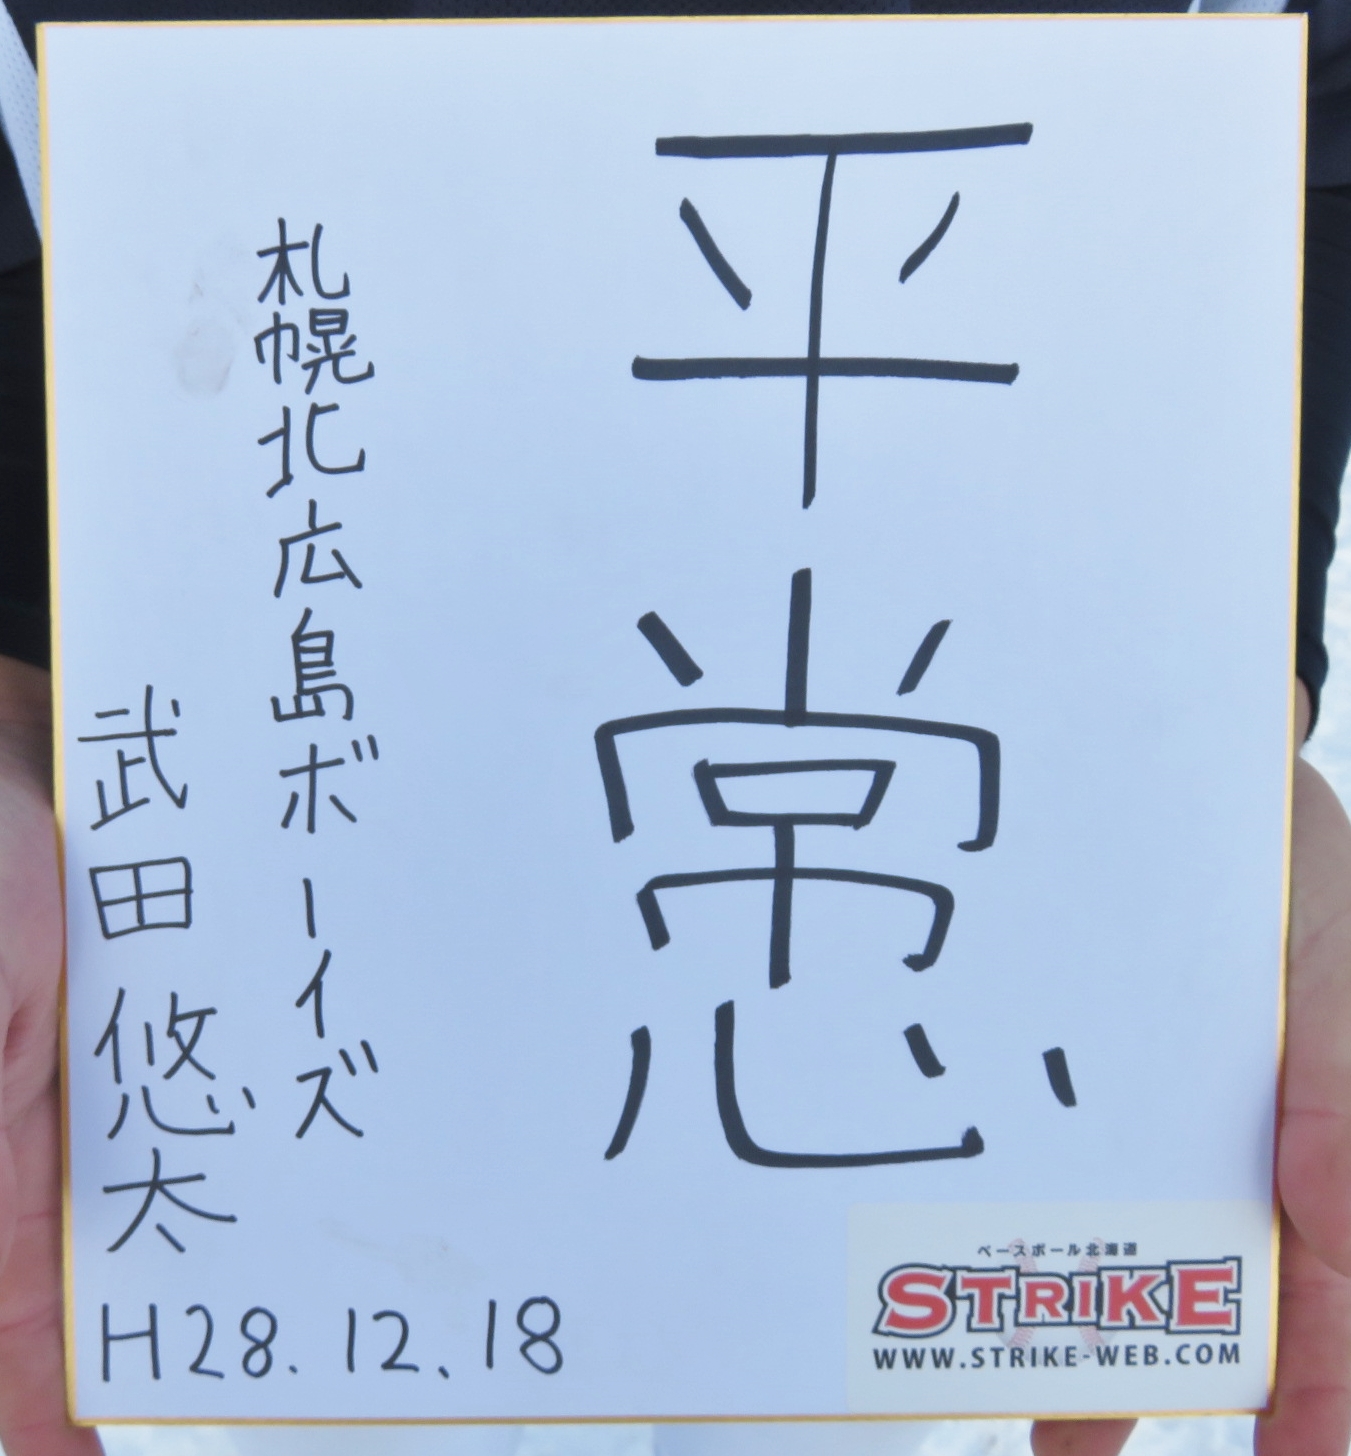 平常心
札幌北広島ボーイズ
武田悠太
H28.12.18
ベースボール北海道
STRIKE
WWW.STRIKE-WEB.COM